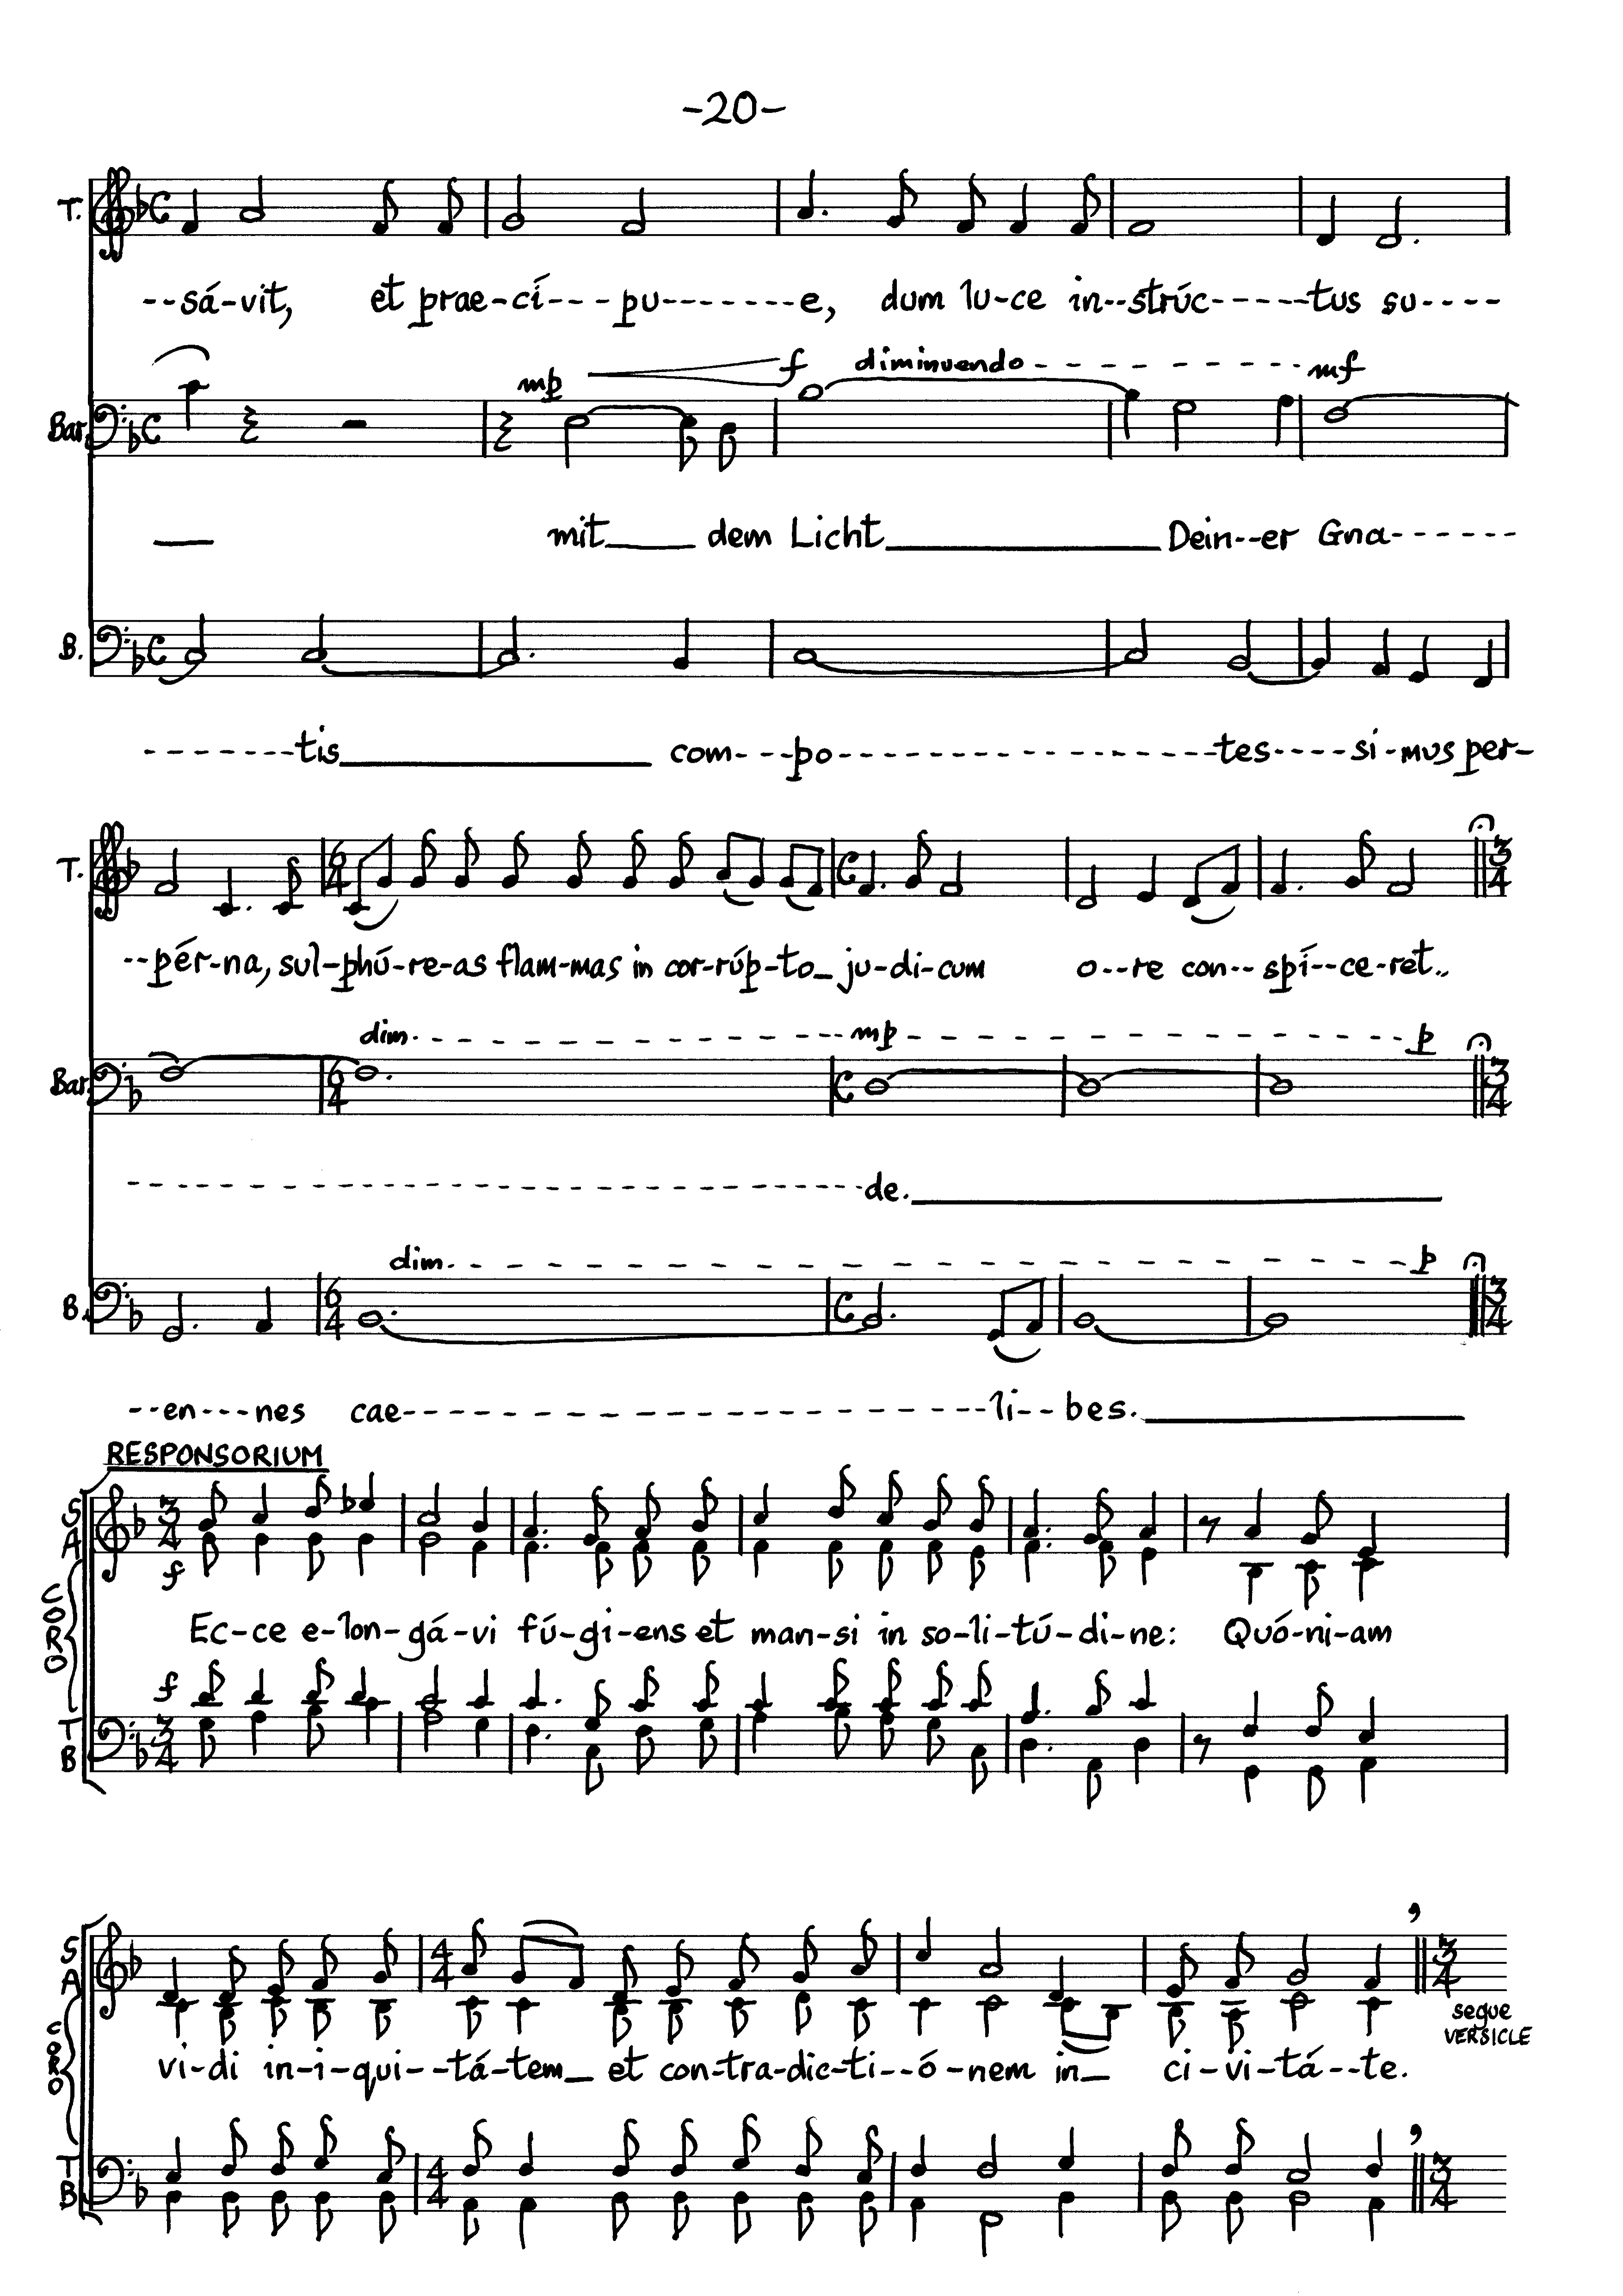 -20-
T.
--sá-vit, et prae-cí---pu-------e, dum lu-ce in--strúc-----tus su----
mp f diminuendo - - - - - - - - - mf
Bar.
mit___ dem Licht___ Dein--er Gna------
B.
-------tis___ com---po----------------tes----si-mus per-
T. 6/4 3/4
--pér-na, sul-phú-re-as flam-mas in cor-rúp-to_ ju-di-cum o--re con--spí--ce-ret..
dim. - - - - - - - - - - mp - - - - - - - - - - p
Bar. 6/4 3/4
- - - - - - - - - - - - - - - - - - de.___
dim. - - - - - - - - - - - - - - - - - - p
B. 6/4 3/4
--en---nes cae- - - - - - - - - - - - - - - - - -li--bes.___
RESPONSORIUM
S
A
3/4
f
CORO
Ec-ce e-lon-gá-vi fú-gi-ens et man-si in so-li-tú-di-ne: Quó-ni-am
f
T
B
3/4
S
A
4/4 3/4
segue
VERSICLE
CORO
vi-di in-i-qui--tá-tem_ et con-tra-dic-ti--ó-nem in_ ci-vi-tá--te.
T
B
4/4 3/4